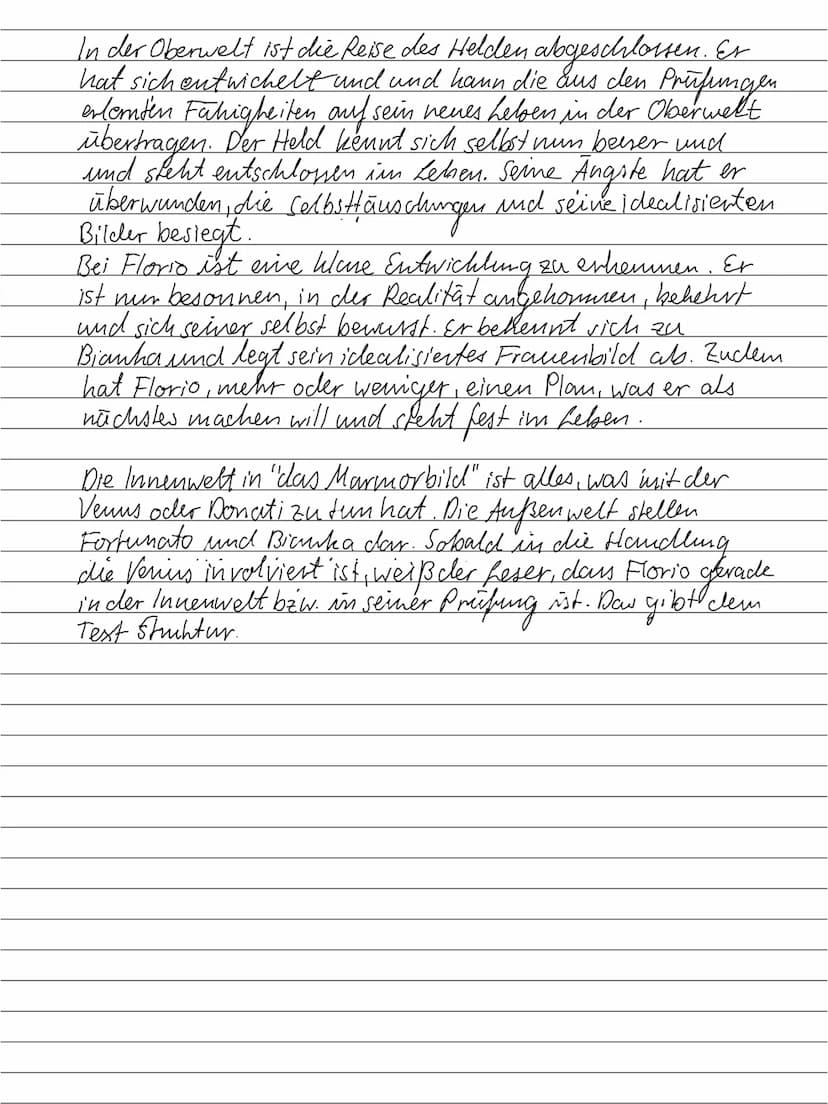 In der Oberwelt ist die Reise des Helden abgeschlossen. Er
hat sich entwickelt und und kann die aus den Prüfungen
erlernten Fähigkeiten auf sein neues Leben in der Oberwelt
übertragen. Der Held kennt sich selbst nun besser und
und steht entschlossen im Leben. Seine Ängste hat er
überwunden, die Selbsttäuschungen und seine idealisierten
Bilder besiegt.
Bei Florio ist eine klare Entwicklung zu erkennen. Er
ist nun besonnen, in der Realität angekommen, bekehrt
und sich seiner selbst bewusst. Er bekennt sich zu
Bianka und legt sein idealisiertes Frauenbild ab. Zudem
hat Florio, mehr oder weniger, einen Plan, was er als
nächstes machen will und steht fest im Leben.

Die Innenwelt in "das Marmorbild" ist alles, was mit der
Venus oder Donati zu tun hat. Die Außenwelt stellen
Fortunato und Bianka dar. Sobald in die Handlung
die Venus involviert ist, weiß der Leser, dass Florio gerade
in der Innenwelt bzw. in seiner Prüfung ist. Das gibt dem
Text Struktur.